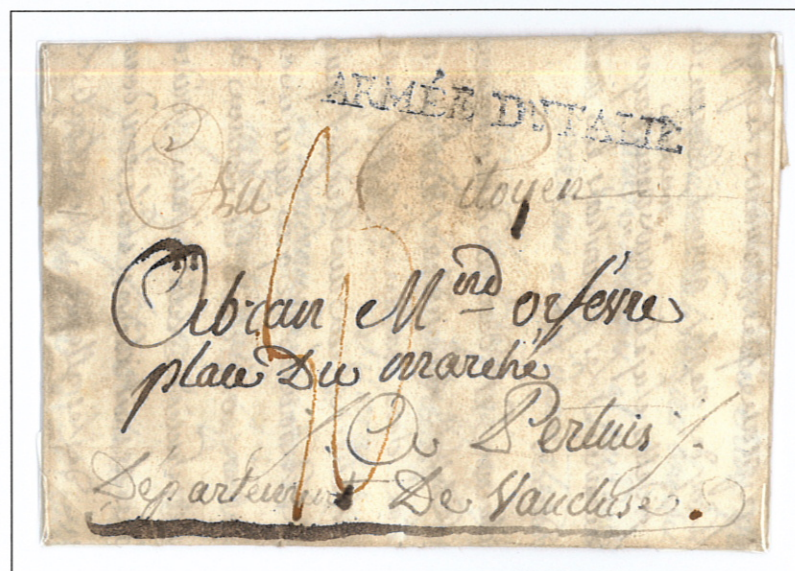 ARMÉE D'ITALIE
Au Citoyen
Mnd orfévre
place Du marché
A Pertuis
Département De Vaucluse.